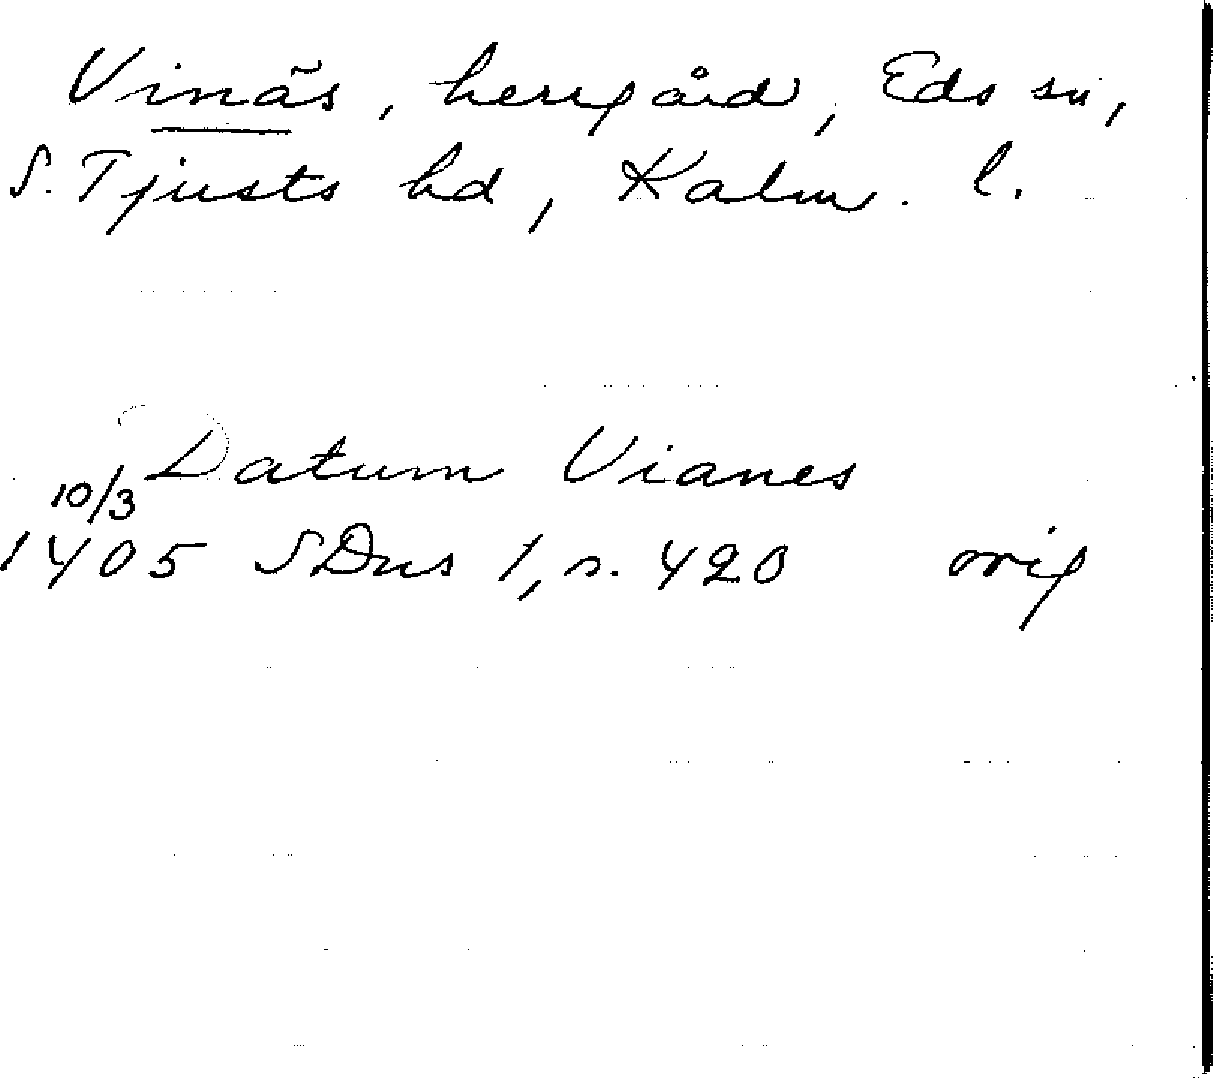 Vinäs, herrgård, Eds sn,
S. Tjusts hd, Kalm. l.
Datum Vianes
10/3
1405 SDns 1, s. 420 orig